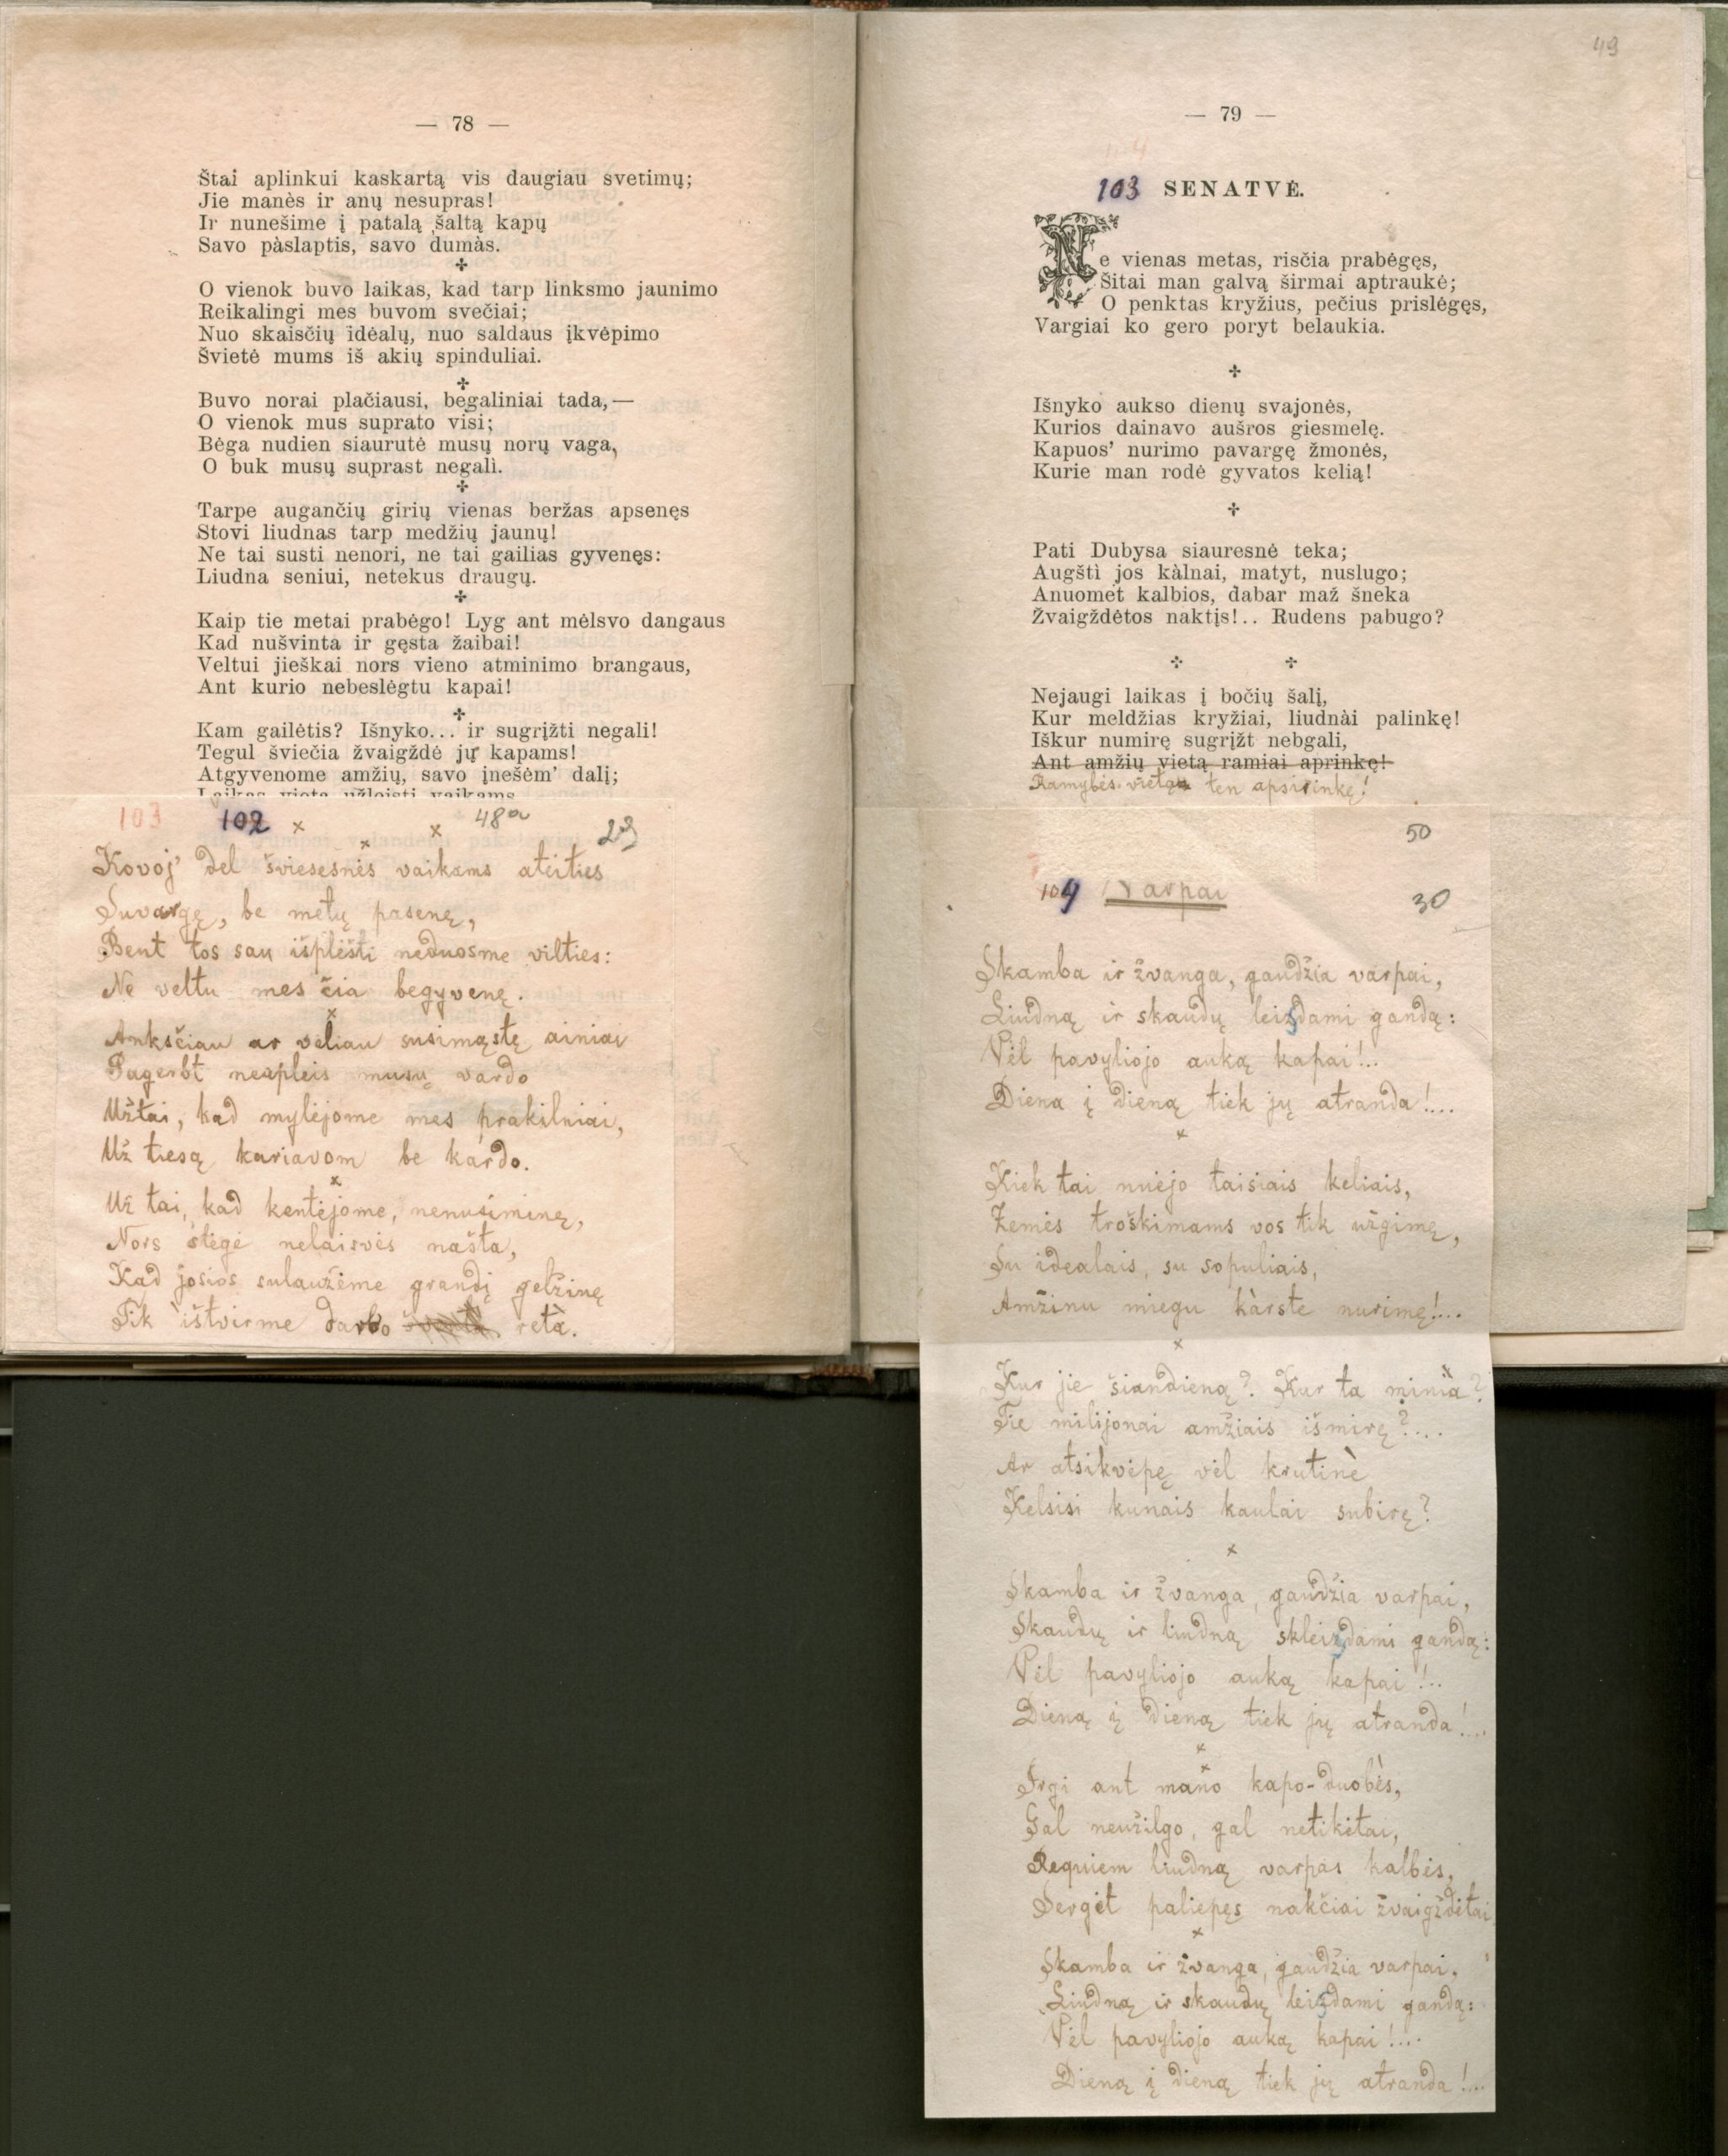 — 78 —
Štai aplinkui kaskartą vis daugiau svetimų;
Jie manès ir anų nesupras!
Ir nunešime į patalą šaltą kapų
Savo pàslaptis, savo dumàs.
✢
O vienok buvo laikas, kad tarp linksmo jaunimo
Reikalingi mes buvom svečiai;
Nuo skaisčių idėalų, nuo saldaus įkvėpimo
Švietė mums iš akių spinduliai.
✢
Buvo norai plačiausi, begaliniai tada,—
O vienok mus suprato visi;
Bėga nudien siaurutė musų norų vaga,
O buk musų suprast negalì.
✢
Tarpe augančių girių vienas beržas apsenęs
Stovi liudnas tarp medžių jaunų!
Ne tai susti nenori, ne tai gailias gyvenęs:
Liudna seniui, netekus draugų.
✢
Kaip tie metai prabėgo! Lyg ant mėlsvo dangaus
Kad nušvinta ir gęsta žaibai!
Veltui jieškai nors vieno atminimo brangaus,
Ant kurio nebeslėgtu kapai!
✢
Kam gailėtis? Išnyko... ir sugrįžti negali!
Tegul šviečia žvaigždė jų kapams!
Atgyvenome amžių, savo įnešėm' dalį;
Laikas vietą užleisti vaikams
103 102 × × × 48a 29
Kovoj' del šviesesnės vaikams ateities
Suvargę, be metų pasenę,
Bent tos sau išplėšti neduosme vilties:
Ne veltu mes čia begyvenę.
×
Anksčiau ar vėliau susimąstę ainiai
Pagerbt neapleis musų vardo
Užtai, kad mylėjome mes prakilniai,
Už tiesą kariavom be kardo.
×
Už tai, kad kentėjome, nenusiminę,
Nors slėgė nelaisvės našta,
Kad josios sulaužėme grandį gelžinę
Tik ištvirme darbo retà.
49
— 79 —
104
103 SENATVĖ.
Ne vienas metas, risčia prabėgęs,
Šitai man galvą širmai aptraukė;
O penktas kryžius, pečius prislėgęs,
Vargiai ko gero poryt belaukia.
✢
Išnyko aukso dienų svajonės,
Kurios dainavo aušros giesmelę.
Kapuos' nurimo pavargę žmonės,
Kurie man rodė gyvatos kelią!
✢
Pati Dubysa siauresnė teka;
Augštì jos kàlnai, matyt, nuslugo;
Anuomet kalbios, dabar maž šneka
Žvaigždėtos naktįs!.. Rudens pabugo?
✢ ✢
Nejaugi laikas į bočių šalį,
Kur meldžias kryžiai, liudnài palinkę!
Iškur numirę sugrįžt nebgali,
Ant amžių vietą ramiai aprinkę!
Ramybės vietą ten apsirinkę!
50
104 Varpai 30
Skamba ir žvanga, gaudžia varpai,
Liudną ir skaudų leizdami gandą:
Vėl pavyliojo auką kapai!..
Diena į dieną tiek jų atranda!...
×
Kiek tai nuėjo taisiais keliais,
Žemės troškimams vos tik užgimę,
Su idealais, su sopuliais,
Amžinu miegu kàrste nurimę!...
×
Kur jie šiandieną? Kur ta minià?
Tie milijonai amžiais išmirę?...
Ar atsikvėpę vėl krutinė
Kelsisi kunais kaulai subirę?
×
Skamba ir žvanga, gaudžia varpai,
Skaudų ir liudną skleizdami gandą:
Vėl pavyliojo auką kapai!..
Dieną į dieną tiek jų atranda!...
×
Irgi ant mano kapo-duobės,
Gal neužilgo, gal netikėtai,
Requiem liudną varpas kalbės,
Sergėt paliepęs nakčiai žvaigždėtai
×
Skamba ir žvanga, gaudžia varpai,
Liudną ir skaudų leizdami gandą:
Vėl pavyliojo auką kapai!...
Dieną į dieną tiek jų atranda!...